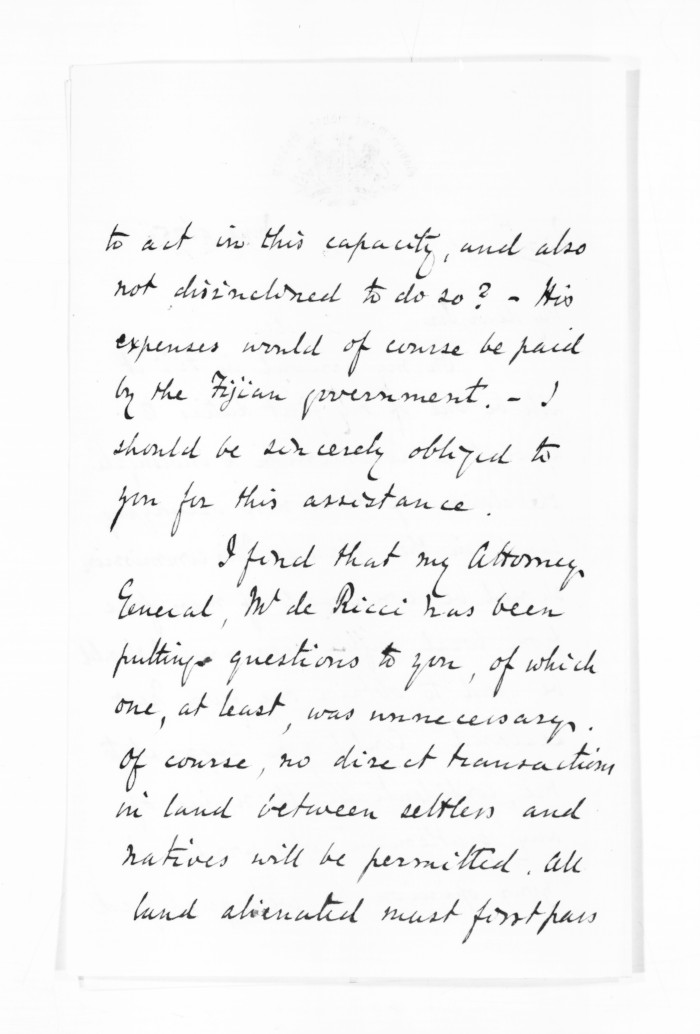 to act in this capacity, and also
not disinclined to do so? - His
expenses would of course be paid
by the Fijian government. - I
should be sincerely obliged to
you for this assistance.
I find that my Attorney
General, Mr de Ricci has been
putting questions to you, of which
one, at least, was unnecessary.
Of course, no direct transactions
in land between settlers and
natives will be permitted. All
land alienated must first pass